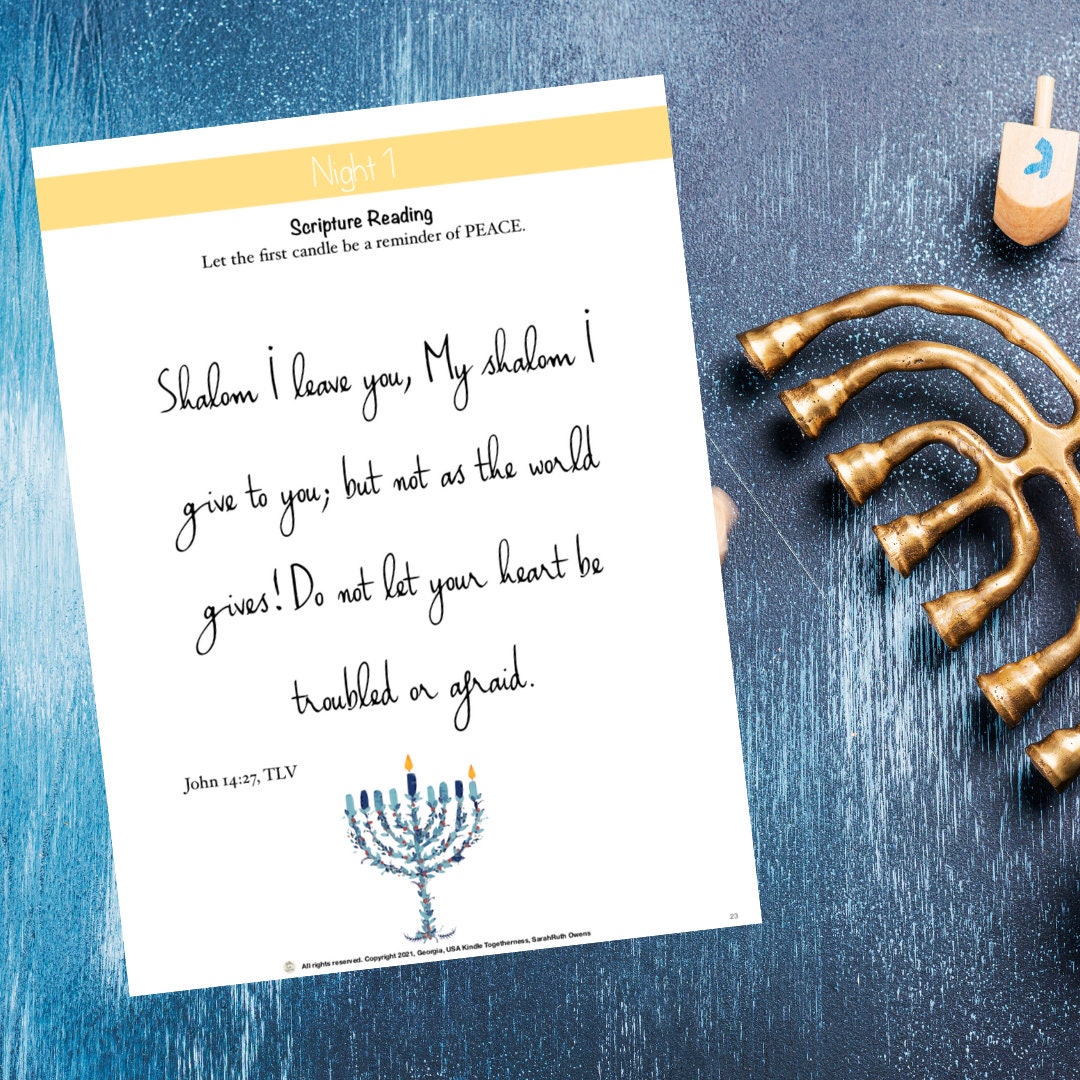 Night 1
Scripture Reading
Let the first candle be a reminder of PEACE.
Shalom I leave you, My shalom I
give to you; but not as the world
gives! Do not let your heart be
troubled or afraid.
John 14:27, TLV
23
All rights reserved. Copyright 2021, Georgia, USA Kindle Togetherness, SarahRuth Owens
נ